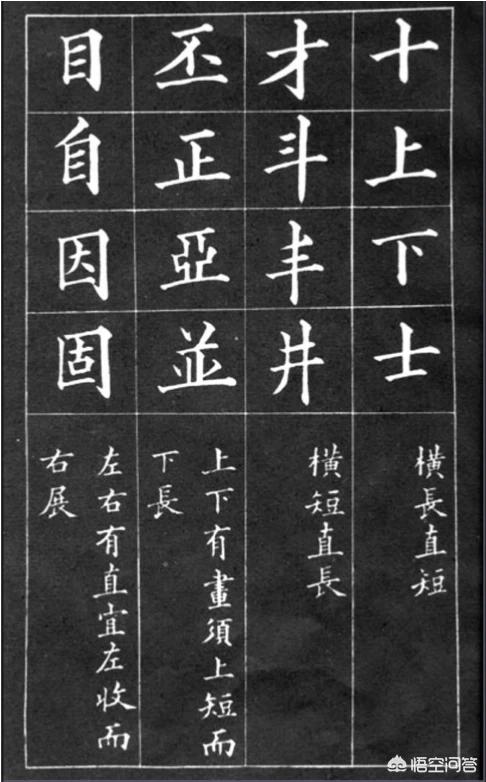 十上下士
橫長直短
才斗丰井
橫短直長
丕正亞並
上下有畫須上短而
下長
目自因固
左右有直宜左收而
右展
悟空问答